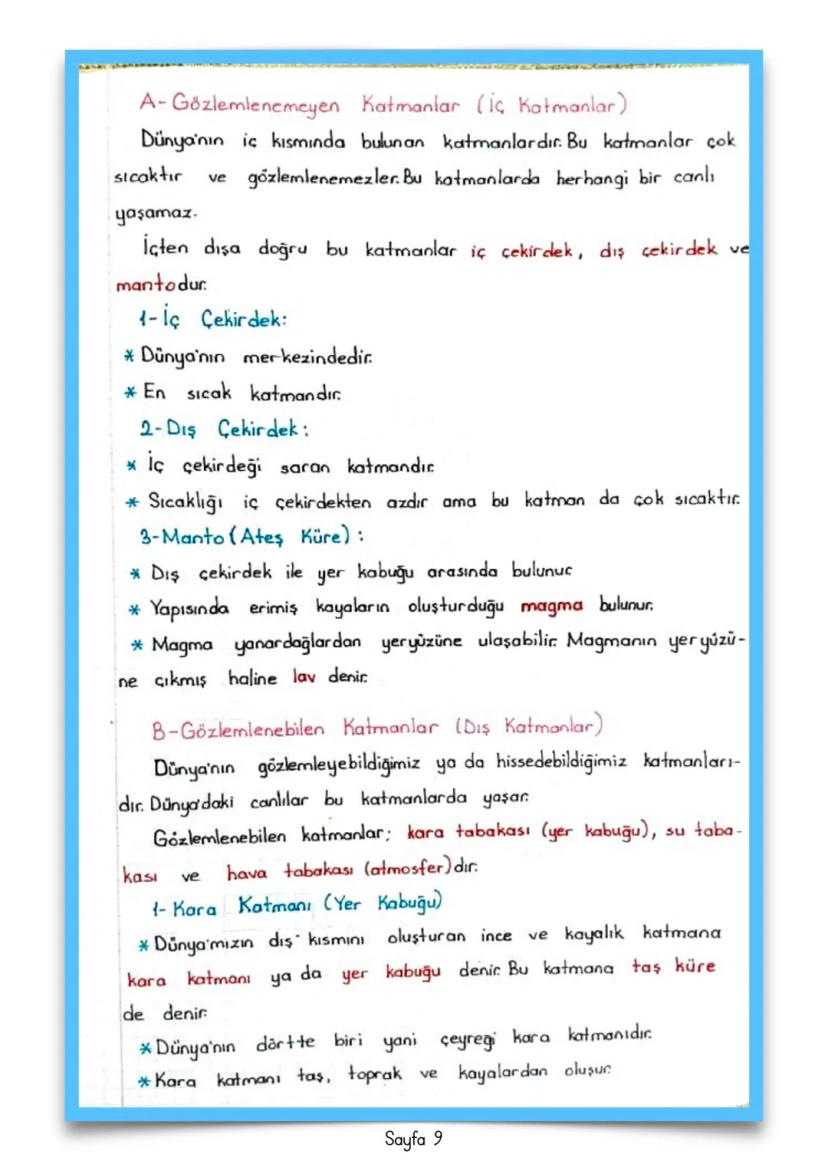 A- Gözlemlenemeyen Katmanlar (İç Katmanlar)
Dünya'nın iç kısmında bulunan katmanlardır. Bu katmanlar çok
sıcaktır ve gözlemlenemezler. Bu katmanlarda herhangi bir canlı
yaşamaz.
İçten dışa doğru bu katmanlar iç çekirdek, dış çekirdek ve
mantodur.
1- İç Çekirdek:
* Dünya'nın merkezindedir.
* En sıcak katmandır.
2- Dış Çekirdek:
* İç çekirdeği saran katmandır.
* Sıcaklığı iç çekirdekten azdır ama bu katman da çok sıcaktır.
3-Manto (Ateş Küre):
* Dış çekirdek ile yer kabuğu arasında bulunur.
* Yapısında erimiş kayaların oluşturduğu magma bulunur.
* Magma yanardağlardan yeryüzüne ulaşabilir. Magmanın yeryüzü-
ne çıkmış haline lav denir.
B-Gözlemlenebilen Katmanlar (Dış Katmanlar)
Dünya'nın gözlemleyebildiğimiz ya da hissedebildiğimiz katmanları-
dır. Dünya'daki canlılar bu katmanlarda yaşar.
Gözlemlenebilen katmanlar; kara tabakası (yer kabuğu), su taba-
kası ve hava tabakası (atmosfer)dır.
1- Kara Katmanı (Yer Kabuğu)
* Dünya'mızın dış kısmını oluşturan ince ve kayalık katmana
kara katmanı ya da yer kabuğu denir. Bu katmana taş küre
de denir.
* Dünya'nın dörtte biri yani çeyreği kara katmanıdır.
* Kara katmanı taş, toprak ve kayalardan oluşur.
Sayfa 9